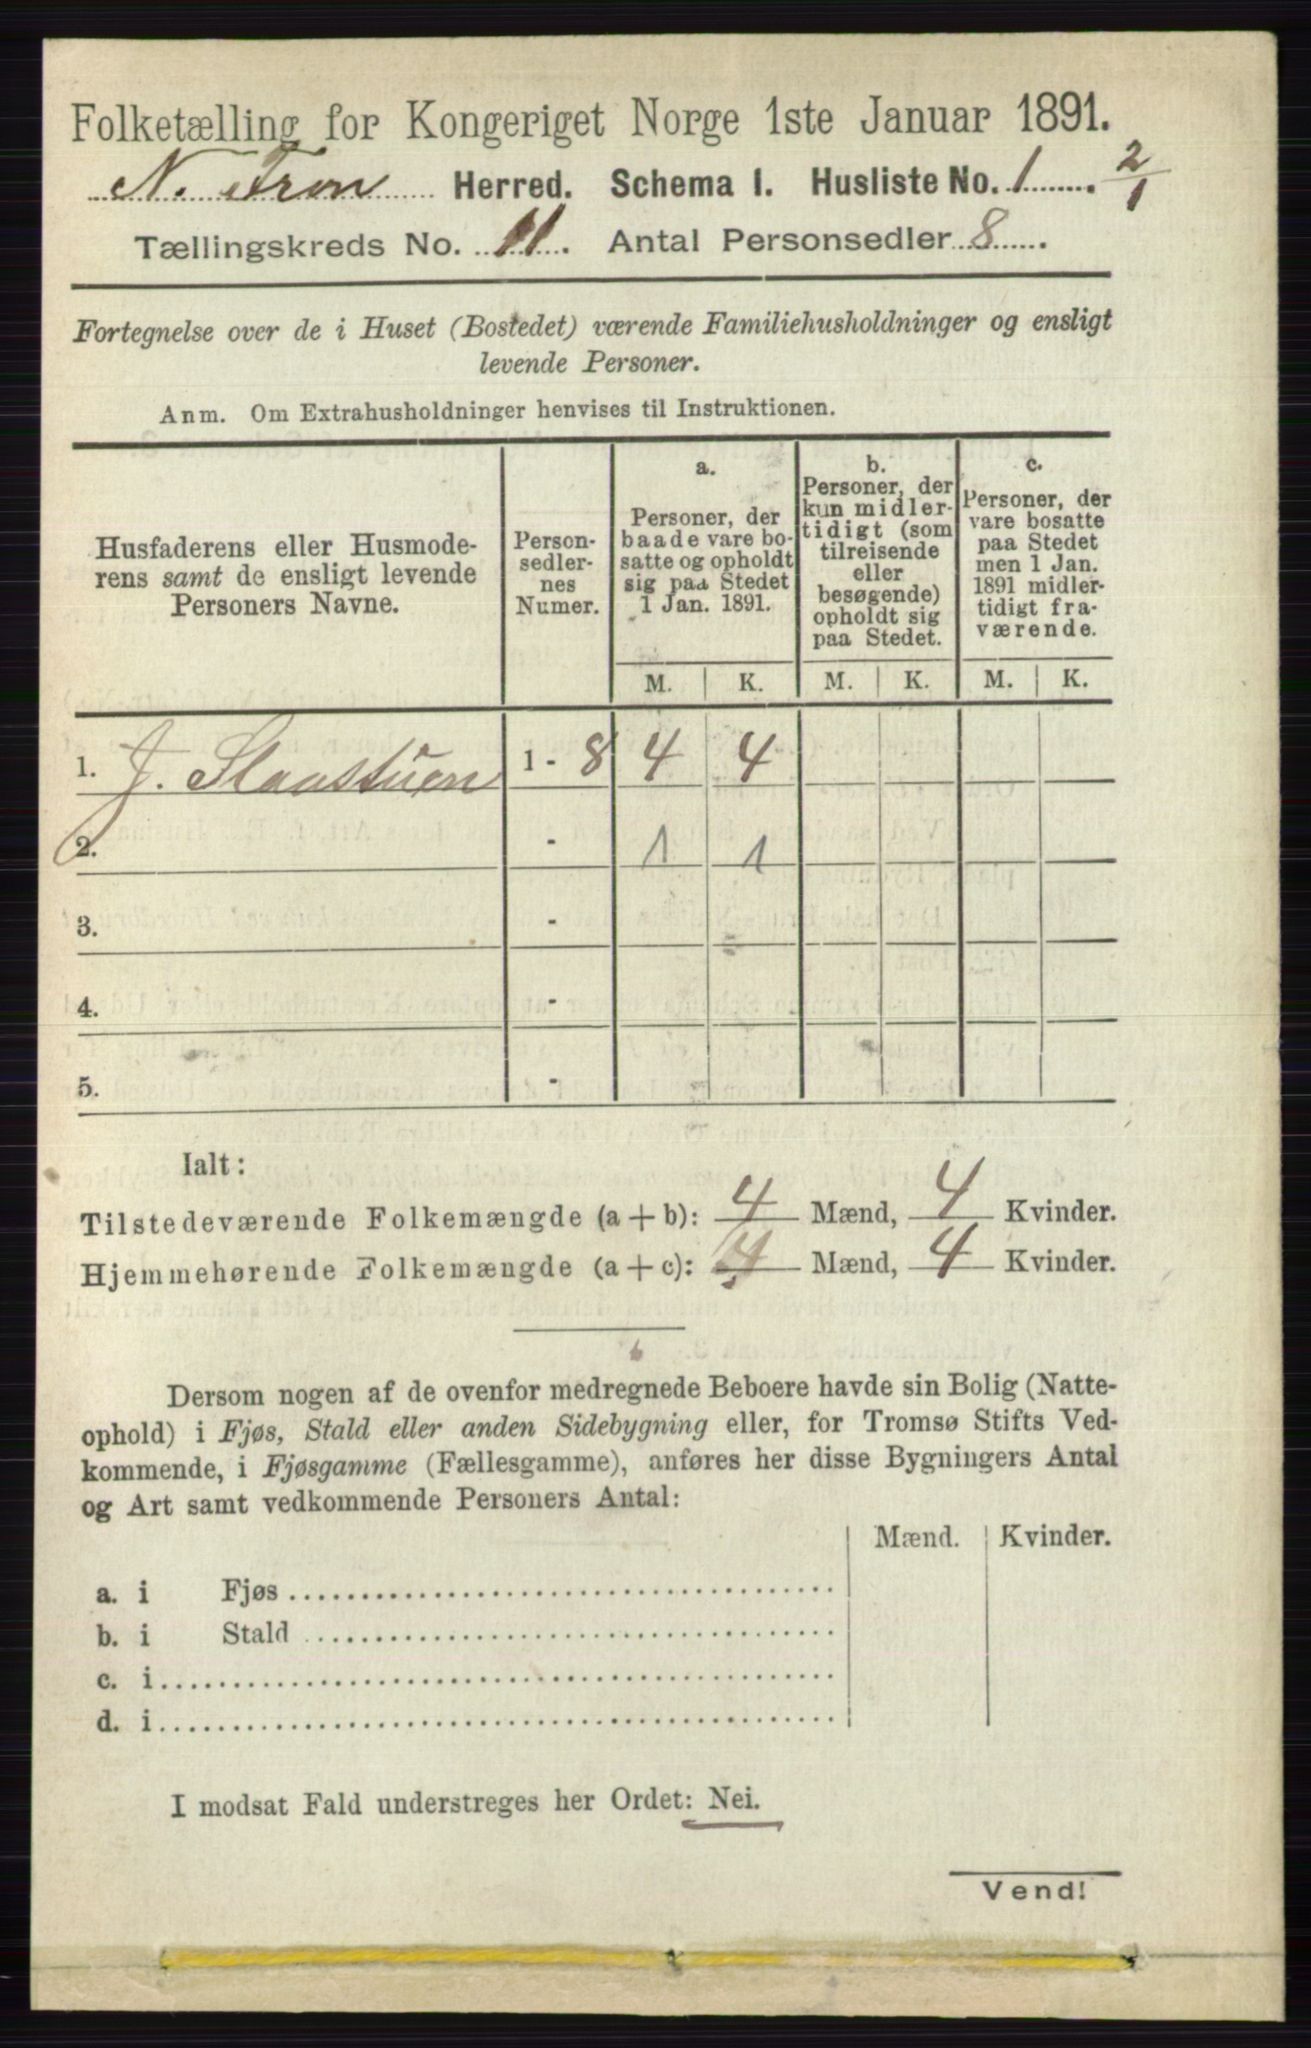 Folketælling for Kongeriget Norge 1ste Januar 1891.
N. Fron Herred. Schema I. Husliste No. 1. 2/1
Tællingskreds No. 11. Antal Personsedler 8.
Fortegnelse over de i Huset (Bostedet) værende Familiehusholdninger og ensligt
levende Personer.
Anm. Om Extrahusholdninger henvises til Instruktionen.
Husfaderens eller Husmode-
rens samt de ensligt levende
Personers Navne.
Person-
sedler-
nes
Numer.
a.
Personer, der
baade vare bo-
satte og opholdt
sig paa Stedet
1 Jan. 1891.
b.
Personer, der
kun midler-
tidigt (som
tilreisende
eller
besøgende)
opholdt sig
paa Stedet.
c.
Personer, der
vare bosatte
paa Stedet
men 1 Jan.
1891 midler-
tidigt fra-
værende.
M. K. M. K. M. K.
1. J. Slaastuen 1 - 8 4 4
2. - 1 1
3. -
4. -
5. -
Ialt:
Tilstedeværende Folkemængde (a + b): 4 Mænd, 4 Kvinder.
Hjemmehørende Folkemængde (a + c): 4 Mænd, 4 Kvinder.
Dersom nogen af de ovenfor medregnede Beboere havde sin Bolig (Natte-
ophold) i Fjøs, Stald eller anden Sidebygning eller, for Tromsø Stifts Ved-
kommende, i Fjøsgamme (Fællesgamme), anføres her disse Bygningers Antal
og Art samt vedkommende Personers Antal:
Mænd. Kvinder.
a. i Fjøs
b. i Stald
c. i
d. i
I modsat Fald understreges her Ordet: Nei.
Vend!